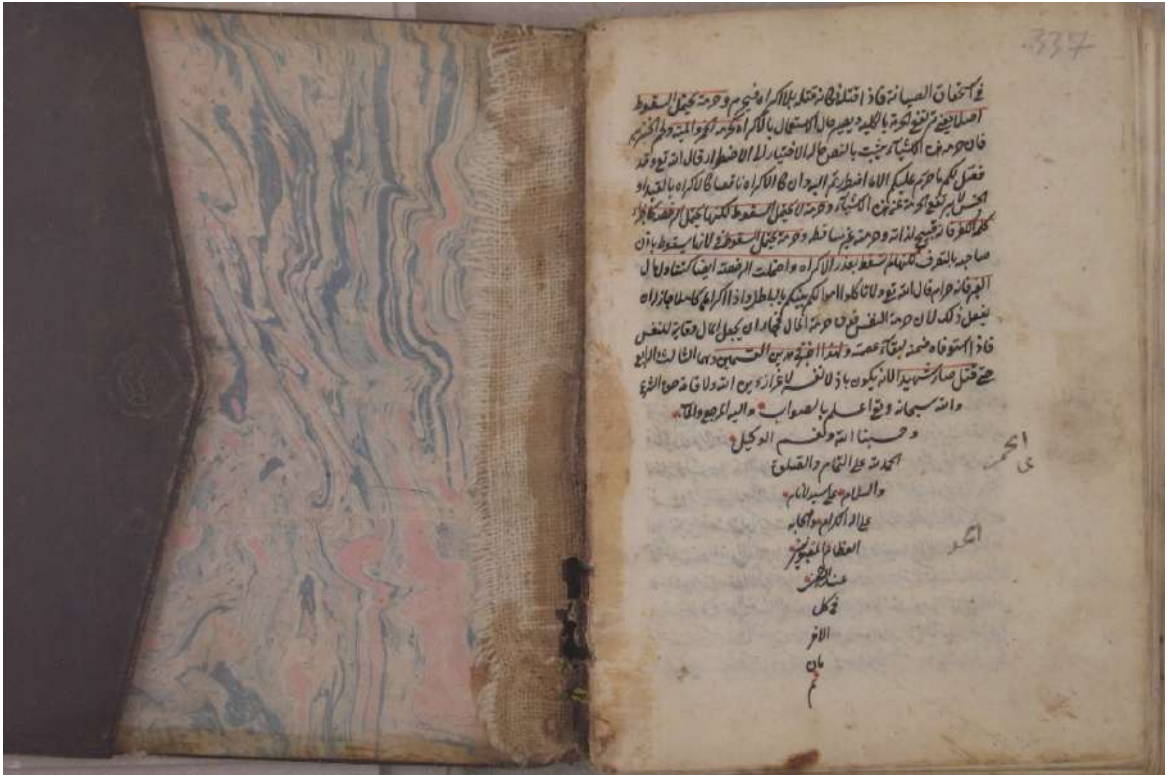 337
في استحقاق الصيانة فاذا قتله فكانه قتله بلا اكراه فيحرم وحرمة يحتمل السقوط
اصلا يعني ترتفع الحرمة بالكلية ويصير حلال الاستعمال بالاكراه كحرمة الخمر والميتة ولحم الخنزير
فان حرمة هذه الاشياء يثبت بالنص حالة الاختيار لا الاضطرار قال الله تع وقد
فصل لكم ما حرم عليكم الا ما اضطررتم اليه وان كان الاكراه ناقصا كالاكراه بالقيد او
الحبس لا يرتفع الحرمة عن هذه الاشياء وحرمة لا يحتمل السقوط لكنها يحتمل الرخصة كاجراء
كلمة الكفر فانه قبيح لذاته وحرمة غير ساقط وحرمة يحتمل السقوط في لانها يسقط باذن
صاحبه بالتصرف لكنها لم تسقط بعذر الاكراه واحتملت الرخصة ايضا كتناول مال
الغير فانه حرام قال الله تع ولا تاكلوا اموالكم بينكم بالباطل واذا اكراها كاملا جاز له ان
يفعل ذلك لان حرمة النفس فوق حرمة المال فجاز ان يجعل المال وقاية للنفس
فاذا استوفاه ضمنه لبقاء عصمته ولهذا اي في هذين القسمين وهما الثالث والرابع
حتى قتل صار شهيدا لانه يكون باذلا نفسه لاعزاز دين الله ولاقامة حق الشرع
والله سبحانه وتع اعلم بالصواب واليه المرجع والمآب
وحسبنا الله ونعم الوكيل
الحمد لله على التمام والصلوة
والسلام على سيد الانام
على اله الكرام واصحابه
العظام المقبولين
عند الرحمن
في كل
الاز
مان
تم